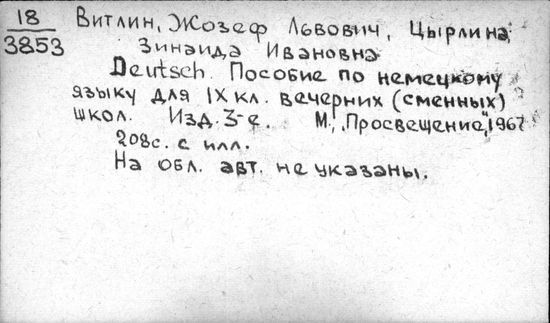 18
3853
Витлин, Жозеф Львович, Цырлина
Зинаида Ивановна
Deutsch. Пособие по немецкому
языку для IX кл. вечерних (сменных)
школ. Изд. 3-е. М., „Просвещение“, 1967
208с. с илл.
На обл. авт. не указаны.